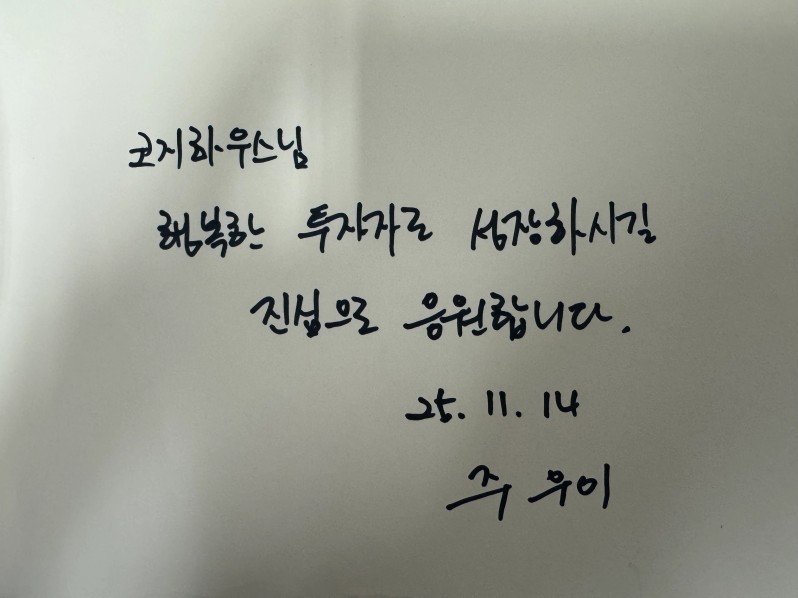 코지하우스님
행복한 투자자로 성장하시길
진심으로 응원합니다.
25. 11. 14
주우이